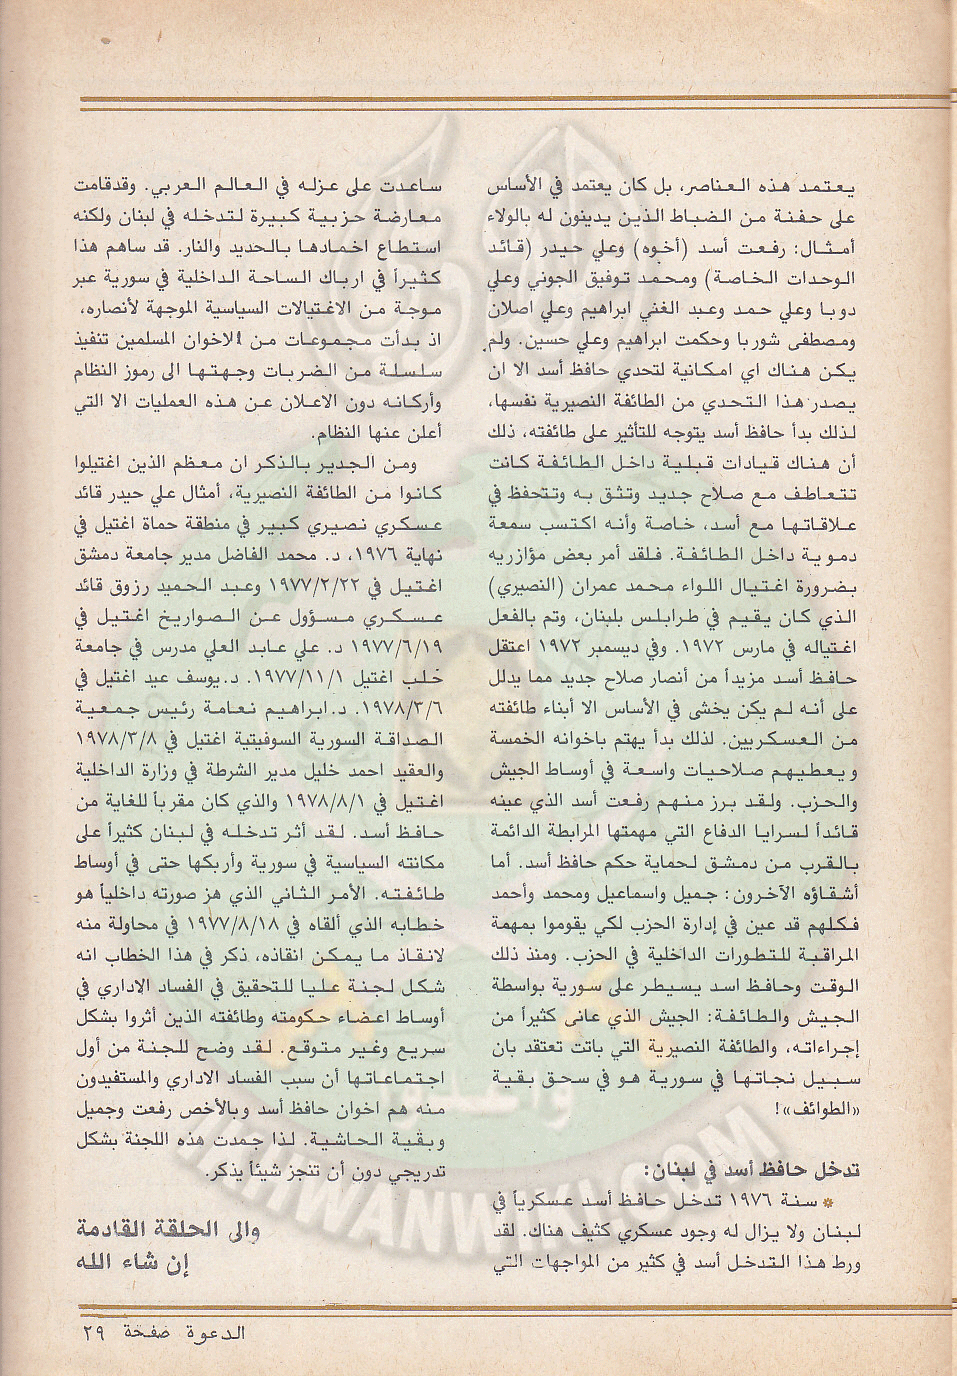 يعتمد هذه العناصر، بل كان يعتمد في الأساس
على حفنة من الضباط الذين يدينون له بالولاء
أمثال: رفعت أسد (أخوه) وعلي حيدر (قائد
الوحدات الخاصة) ومحمد توفيق الجوني وعلي
دوبا وعلي حمد وعبد الغني ابراهيم وعلي اصلان
ومصطفى شوربا وحكمت ابراهيم وعلي حسين. ولم
يكن هناك اي امكانية لتحدي حافظ أسد الا ان
يصدر هذا التحدي من الطائفة النصيرية نفسها،
لذلك بدأ حافظ أسد يتوجه للتأثير على طائفته، ذلك
أن هناك قيادات قبلية داخل الطائفة كانت
تتعاطف مع صلاح جديد وتثق به وتتحفظ في
علاقاتها مع أسد، خاصة وأنه اكتسب سمعة
دموية داخل الطائفة. فلقد أمر بعض مؤازريه
بضرورة اغتيال اللواء محمد عمران (النصيري)
الذي كان يقيم في طرابلس بلبنان، وتم بالفعل
اغتياله في مارس ١٩٧٢. وفي ديسمبر ١٩٧٢ اعتقل
حافظ أسد مزيداً من أنصار صلاح جديد مما يدلل
على أنه لم يكن يخشى في الأساس الا أبناء طائفته
من العسكريين. لذلك بدأ يهتم باخوانه الخمسة
ويعطيهم صلاحيات واسعة في أوساط الجيش
والحزب. ولقد برز منهم رفعت أسد الذي عينه
قائداً لسرايا الدفاع التي مهمتها المرابطة الدائمة
بالقرب من دمشق لحماية حكم حافظ أسد. أما
أشقاؤه الآخرون: جميل واسماعيل ومحمد وأحمد
فكلهم قد عين في إدارة الحزب لكي يقوموا بمهمة
المراقبة للتطورات الداخلية في الحزب. ومنذ ذلك
الوقت وحافظ اسد يسيطر على سورية بواسطة
الجيش والطائفة: الجيش الذي عانى كثيراً من
إجراءاته، والطائفة النصيرية التي باتت تعتقد بان
سبيل نجاتها في سورية هو في سحق بقية
«الطوائف»!
تدخل حافظ أسد في لبنان:
* سنة ١٩٧٦ تدخل حافظ أسد عسكرياً في
لبنان ولا يزال له وجود عسكري كثيف هناك. لقد
ورط هذا التدخل أسد في كثير من المواجهات التي
ساعدت على عزله في العالم العربي. وقدقامت
معارضة حزبية كبيرة لتدخله في لبنان ولكنه
استطاع اخمادها بالحديد والنار. قد ساهم هذا
كثيراً في ارباك الساحة الداخلية في سورية عبر
موجة من الاغتيالات السياسية الموجهة لأنصاره،
اذ بدأت مجموعات من الاخوان المسلمين تنفيذ
سلسلة من الضربات وجهتها الى رموز النظام
وأركانه دون الاعلان عن هذه العمليات الا التي
أعلن عنها النظام.
ومن الجدير بالذكر ان معظم الذين اغتيلوا
كانوا من الطائفة النصيرية، أمثال علي حيدر قائد
عسكري نصيري كبير في منطقة حماة اغتيل في
نهاية ١٩٧٦، د. محمد الفاضل مدير جامعة دمشق
اغتيل في ١٩٧٧/٢/٢٢ وعبد الحميد رزوق قائد
عسكري مسؤول عن الصواريخ اغتيل في
١٩٧٧/٦/١٩ د. علي عابد العلي مدرس في جامعة
حلب اغتيل ١٩٧٧/١١/١. د.يوسف عيد اغتيل في
١٩٧٨/٣/٦. د.ابراهيم نعامة رئيس جمعية
الصداقة السورية السوفيتية اغتيل في ١٩٧٨/٣/٨
والعقيد احمد خليل مدير الشرطة في وزارة الداخلية
اغتيل في ١٩٧٨/٨/١ والذي كان مقرباً للغاية من
حافظ أسد. لقد أثر تدخله في لبنان كثيراً على
مكانته السياسية في سورية وأربكها حتى في أوساط
طائفته. الأمر الثاني الذي هز صورته داخلياً هو
خطابه الذي ألقاه في ١٩٧٧/٨/١٨ في محاولة منه
لانقاذ ما يمكن انقاذه، ذكر في هذا الخطاب انه
شكل لجنة عليا للتحقيق في الفساد الاداري في
أوساط اعضاء حكومته وطائفته الذين أثروا بشكل
سريع وغير متوقع. لقد وضح للجنة من أول
اجتماعاتها أن سبب الفساد الاداري والمستفيدون
منه هم اخوان حافظ أسد وبالأخص رفعت وجميل
وبقية الحاشية. لذا جمدت هذه اللجنة بشكل
تدريجي دون أن تنجز شيئاً يذكر.
والى الحلقة القادمة
إن شاء الله
الدعوة صفحة ٢٩
وأعدوا
IKHWANWIKI.COM